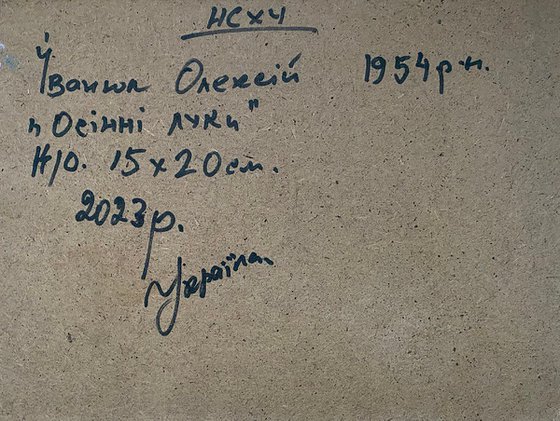 НСХУ
Іванюк Олексій 1954 р.н.
"Осінні луки"
к/о. 15х20см.
2023р.
Україна